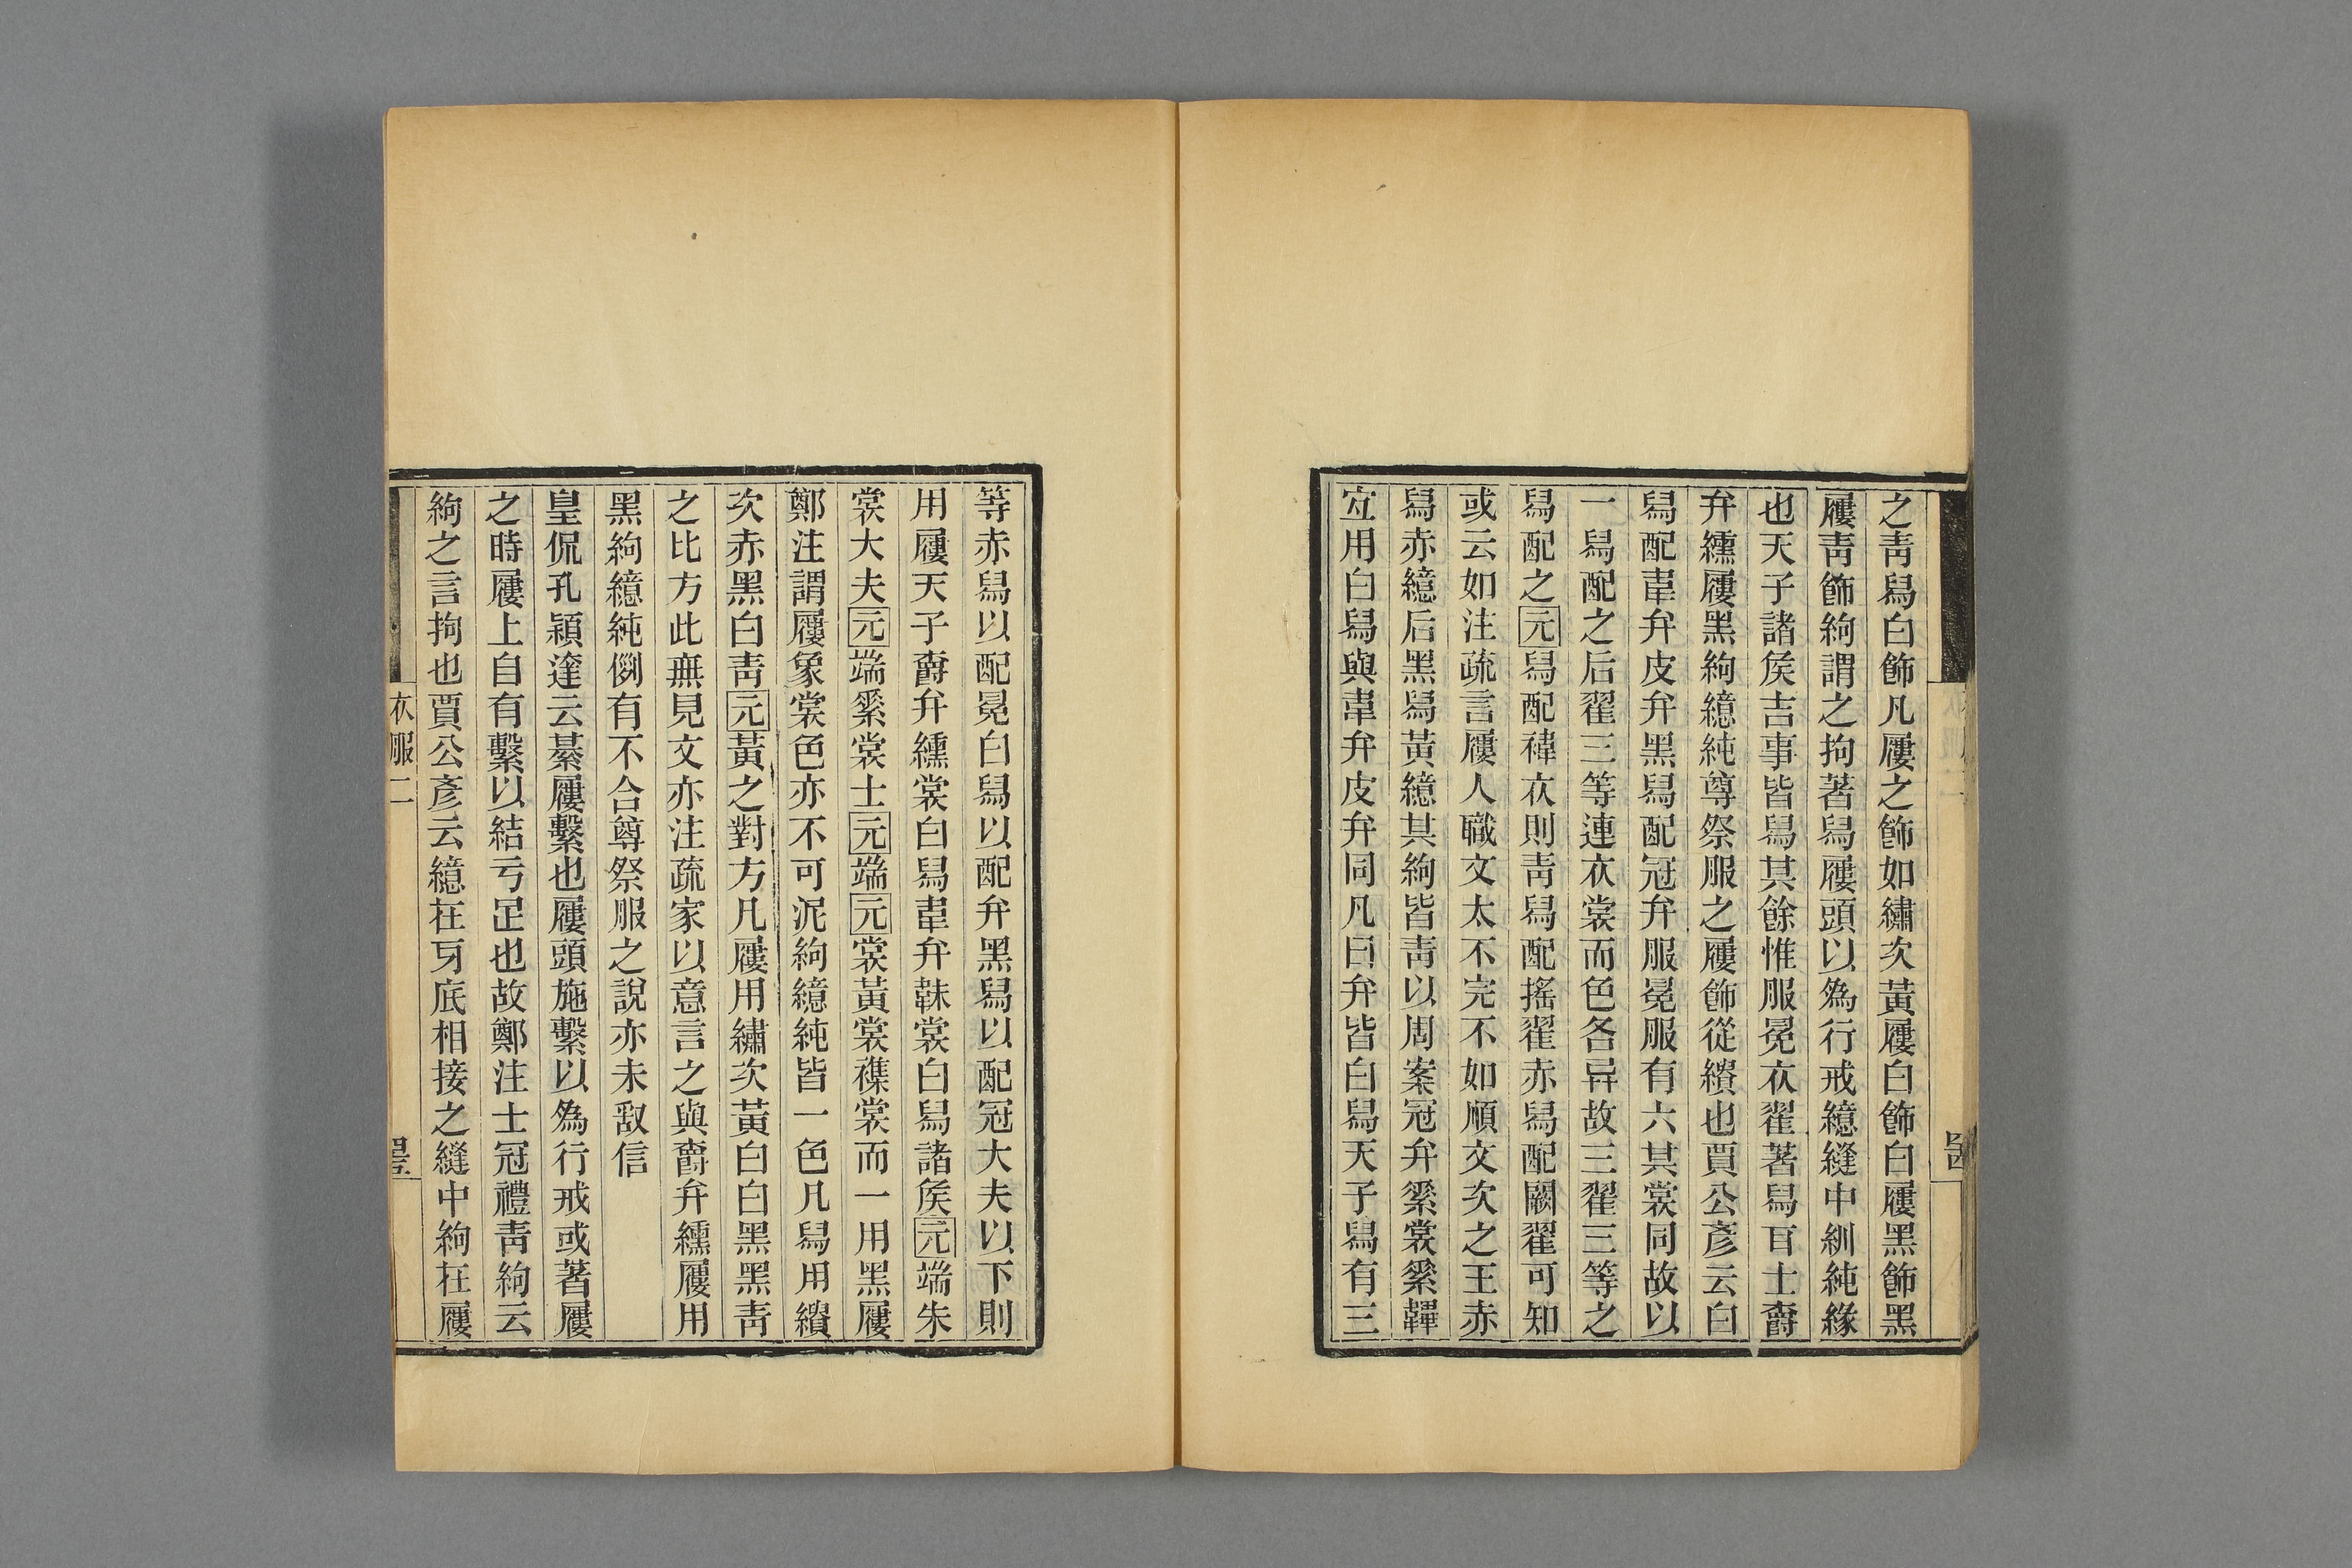 之靑舃白飾凡屨之飾如繡次黃屨白飾白屨黑飾黑
屨靑飾絇謂之拘著舃屨頭以爲行戒繶縫中紃純緣
也天子諸矦吉事皆舃其餘惟服冕衣翟著舃耳士爵
弁纁屨黑絇繶純尊祭服之屨飾從繢也賈公彥云白
舃配韋弁皮弁黑舃配冠弁服冕服有六其裳同故以
一舃配之后翟三等連衣裳而色各异故三翟三等之
舃配之元舃配褘衣則靑舃配搖翟赤舃配闕翟可知
或云如注疏言屨人職文太不完不如順文次之王赤
舃赤繶后黑舃黃繶其絇皆靑以周案冠弁纁裳纁韠
宐用白舃與韋弁皮弁同凡曰弁皆白舃天子舃有三
等赤舃以配冕白舃以配弁黑舃以配冠大夫以下則
用屨天子爵弁纁裳白舃韋弁韎裳白舃諸矦元端朱
裳大夫元端纁裳士元端元裳黃裳襍裳而一用黑屨
鄭注謂屨象裳色亦不可泥絇繶純皆一色凡舃用繢
次赤黑白靑元黃之對方凡屨用繡次黃白白黑黑靑
之比方此無見文亦注疏家以意言之與爵弁纁屨用
黑絇繶純例有不合尊祭服之說亦未敢信
皇侃孔穎達云綦屨繫也屨頭施繫以爲行戒或著屨
之時屨上自有繫以結亏足也故鄭注士冠禮靑絇云
絇之言拘也賈公彥云繶在牙底相接之縫中絇在屨
衣服二